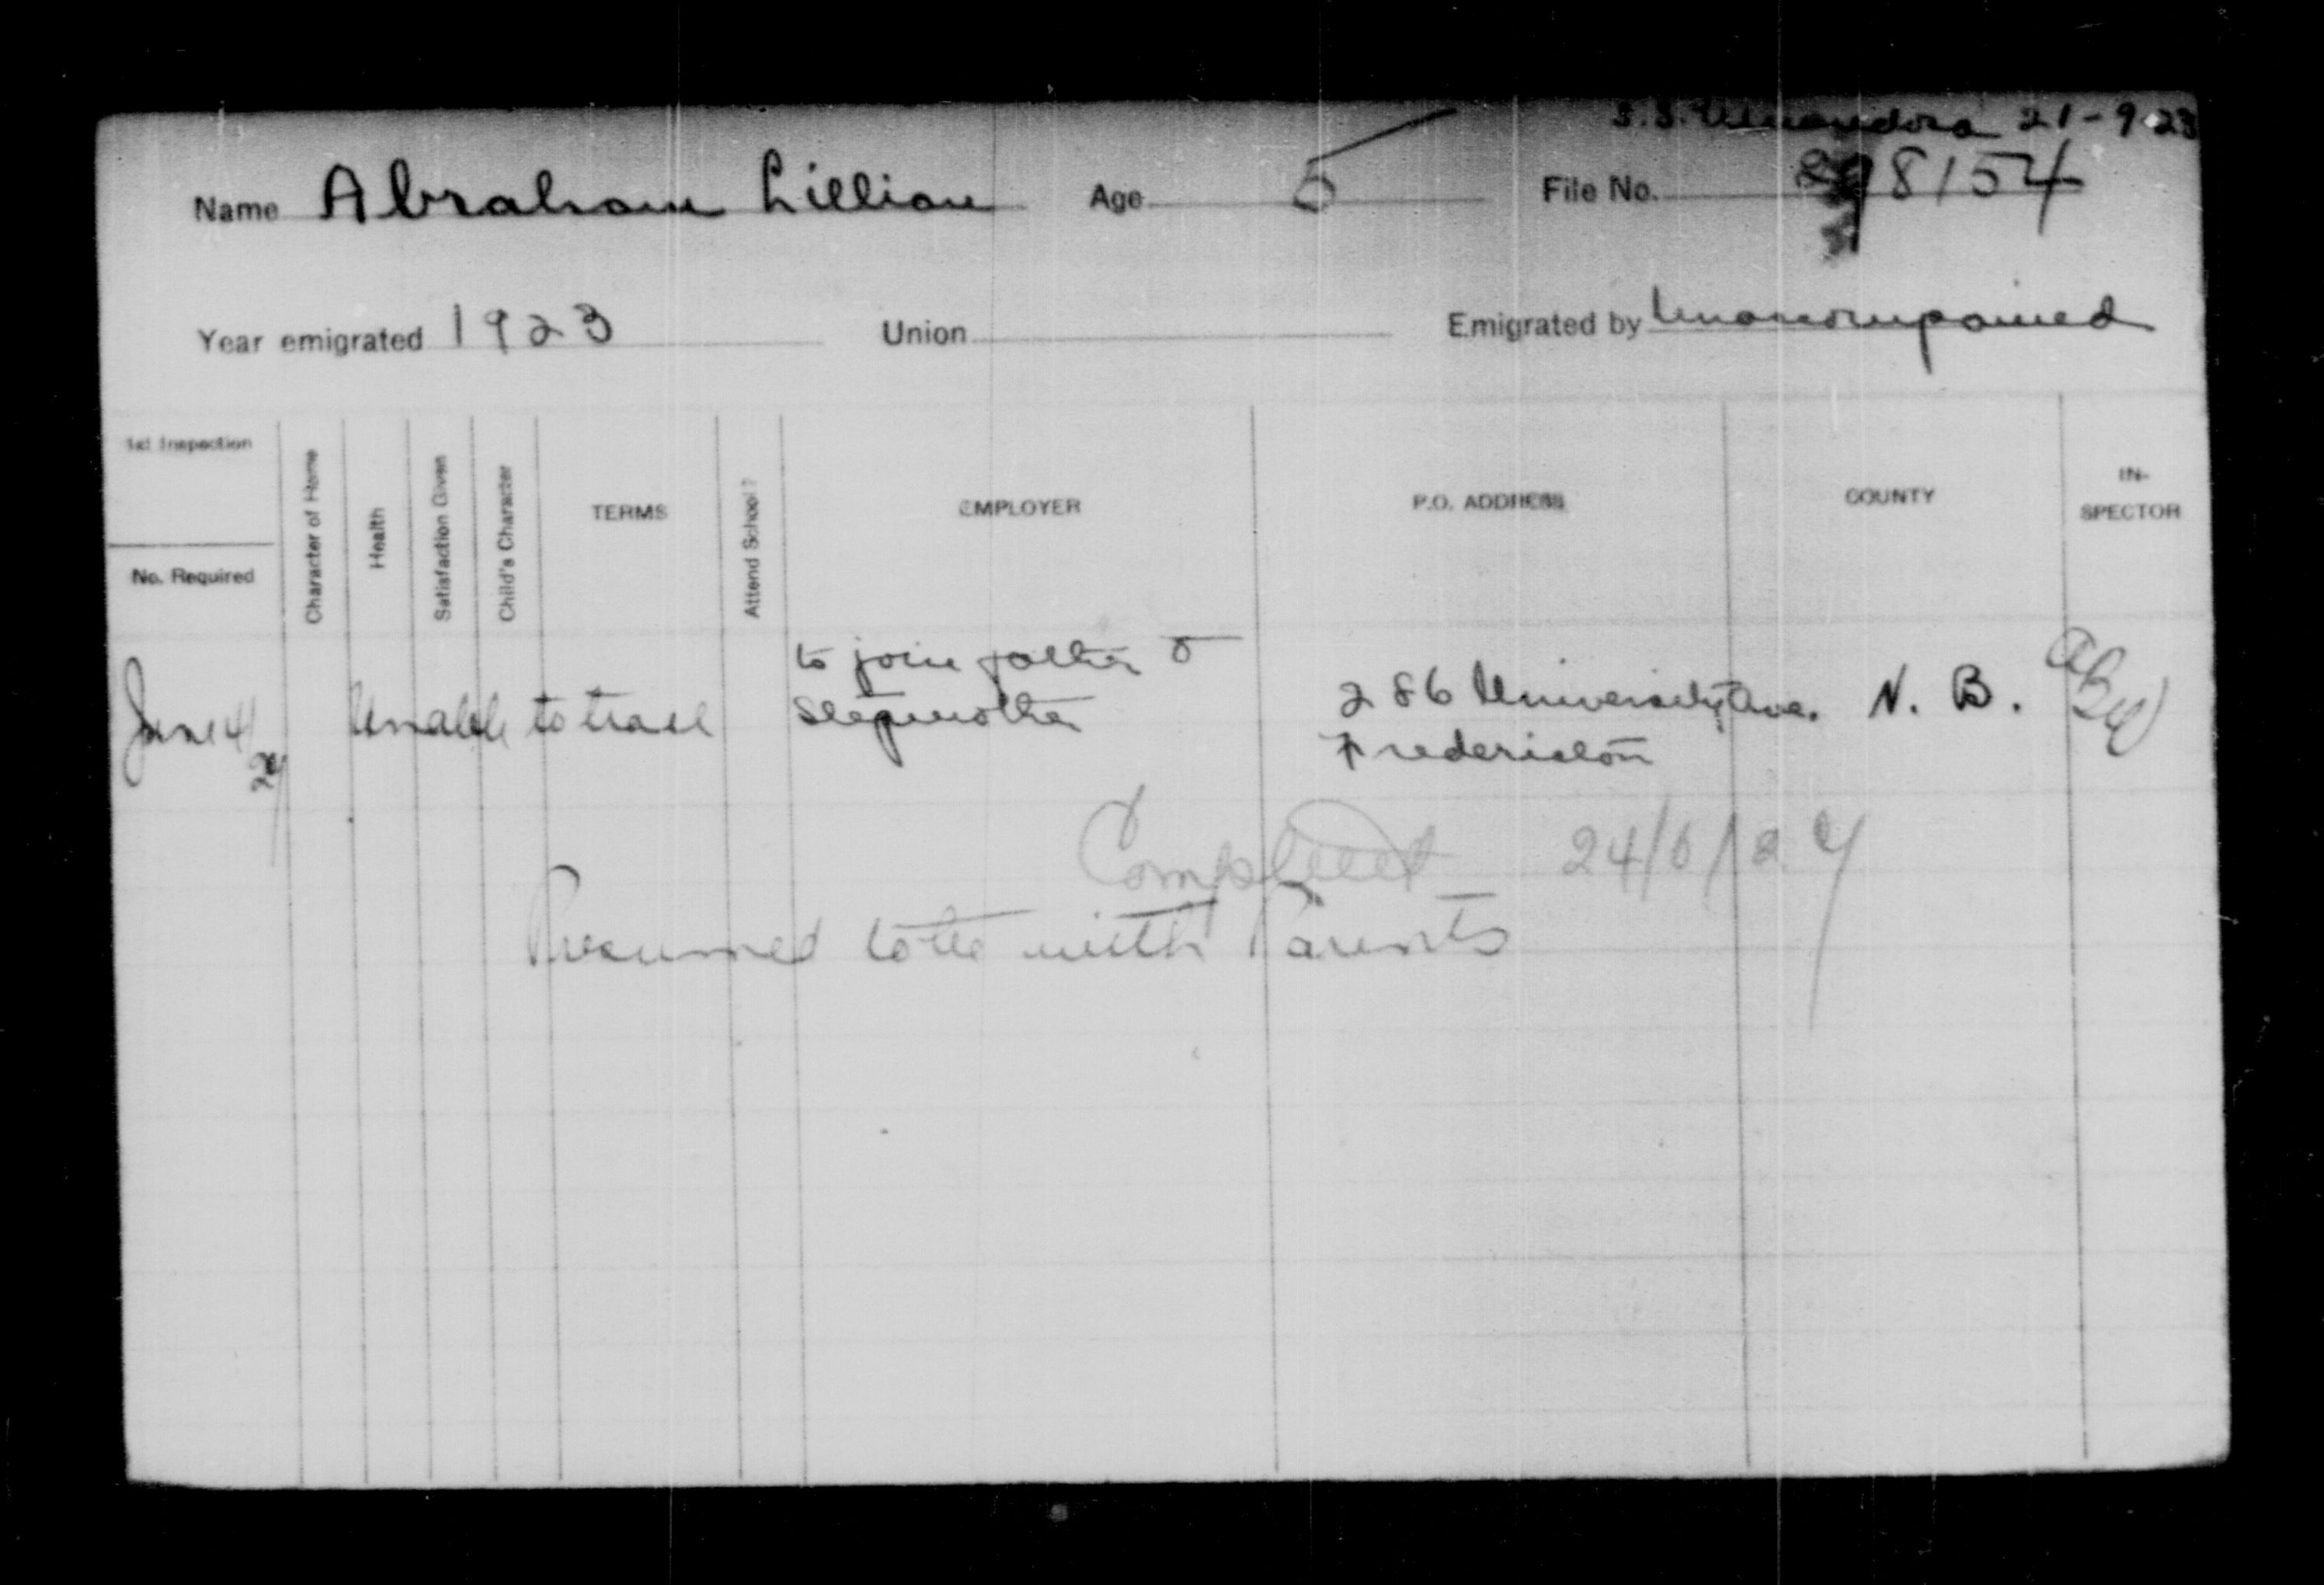 S.S. 21-9-23
Name Abraham Lillian Age 5 File No. 98154
Year emigrated 1923 Union Emigrated by Unaccompanied
1st Inspection
No. Required
Character of Home
Health
Satisfaction Given
Child's Character
TERMS
Attend School?
EMPLOYER
P.O. ADDRESS
COUNTY
IN-
SPECTOR
to join father &
June 4 Unable to trace stepmother 286 University Ave. N. B.
24 Fredericton
Complete 24/6/24
Presumed to be with Parents